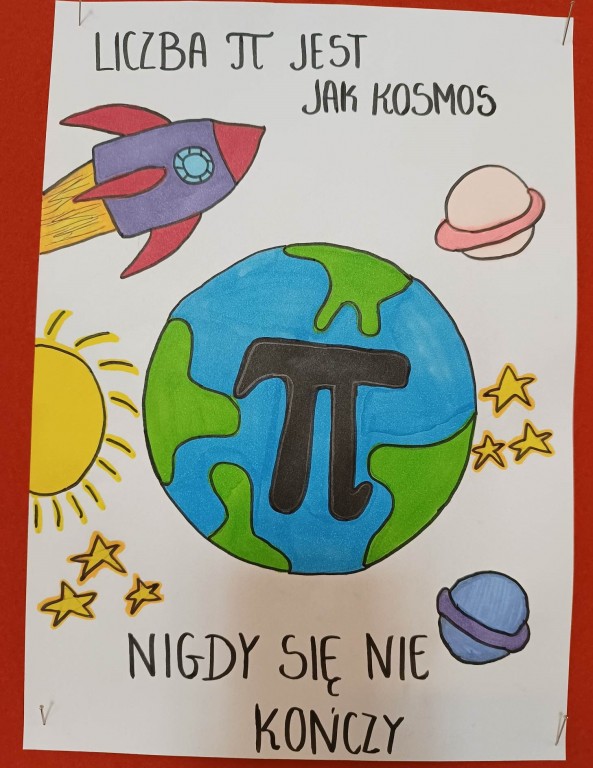 LICZBA π JEST
JAK KOSMOS
π
NIGDY SIĘ NIE
KOŃCZY